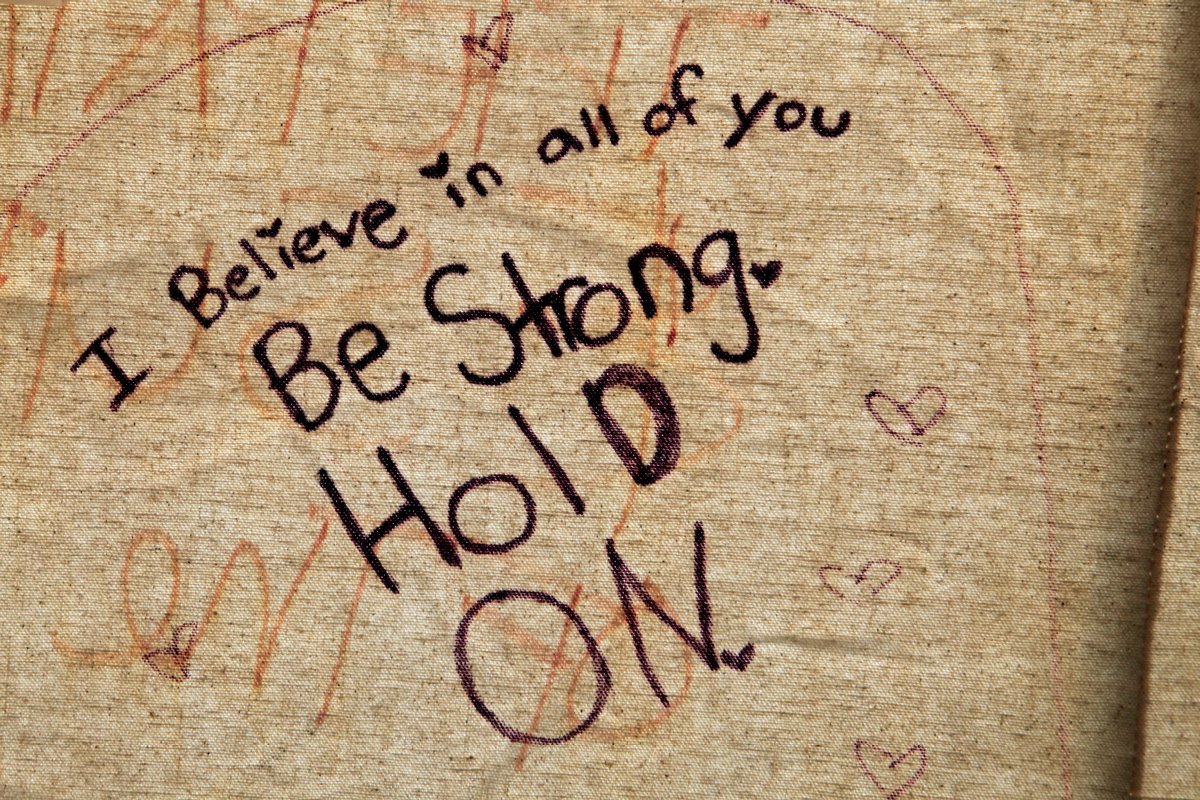 I Believe in all of you
Be Strong.
HolD
ON.